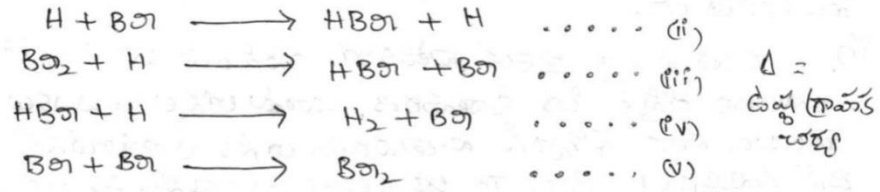 H + Br ⟶ HBr + H ..... (ii)
Br₂ + H ⟶ HBr + Br ..... (iii)
HBr + H ⟶ H₂ + Br ..... (iv)
Br + Br ⟶ Br₂ ..... (v)
Δ =
ఉష్ణ గ్రాహక
చర్య